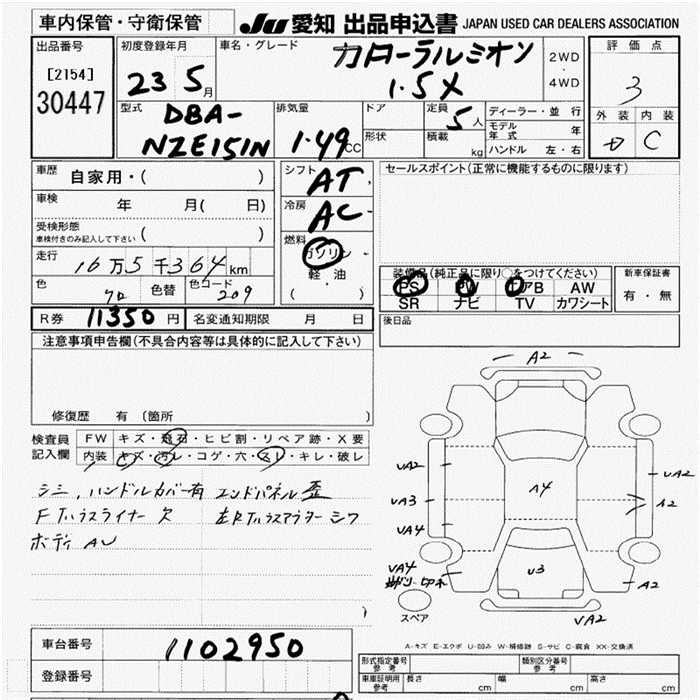 車内保管・守衛保管
JU 愛知 出品申込書 JAPAN USED CAR DEALERS ASSOCIATION
出品番号
[2154]
30447
初度登録年月
23 5月
車名・グレード
カローラルミオン
1.5X
2WD
4WD
評価点
3
外装 内装
C
型式
DBA-
NZE151N
排気量
1.49cc
ドア
形状
定員
5人
積載
kg
ディーラー・並行
モデル年式 年
ハンドル 左・右
車歴
自家用・( )
車検
年 月( 日)
受検形態
車検付きのみ記入して下さい ( )
走行
16万5千364km
色
色替
色コード
209
シフト
AT
冷房
AC
燃料
ガソリン
軽油
( )
セールスポイント(正常に機能するものに限ります)
装備品(純正品に限り○をつけてください)
PS PW エアB AW
SR ナビ TV カワシート
新車保証書
有・無
R券 11350円 名変通知期限 月 日
後日品
注意事項申告欄(不具合内容等は具体的に記入して下さい)
修復歴 有 (箇所 )
検査員記入欄
FW キズ・飛石・ヒビ割・リペア跡・X要
内装 キズ・汚レ・コゲ・穴・スレ・キレ・破レ
シミ,ハンドルカバー有 エンドパネル歪
Fインナーライナー欠
シワ
ボディ AU
A2
UA2
UA3
UA4
A4
UA2
A2
UA4
U3
A2
UA2
スペア
A-キズ E-エクボ U-凹み W-補修跡 S-サビ C-腐食 XX-交換済
車台番号
1102950
登録番号
型式指定番号 参考
類別区分番号 参考
車庫証明用 参考
長さ cm
幅 cm
高さ cm